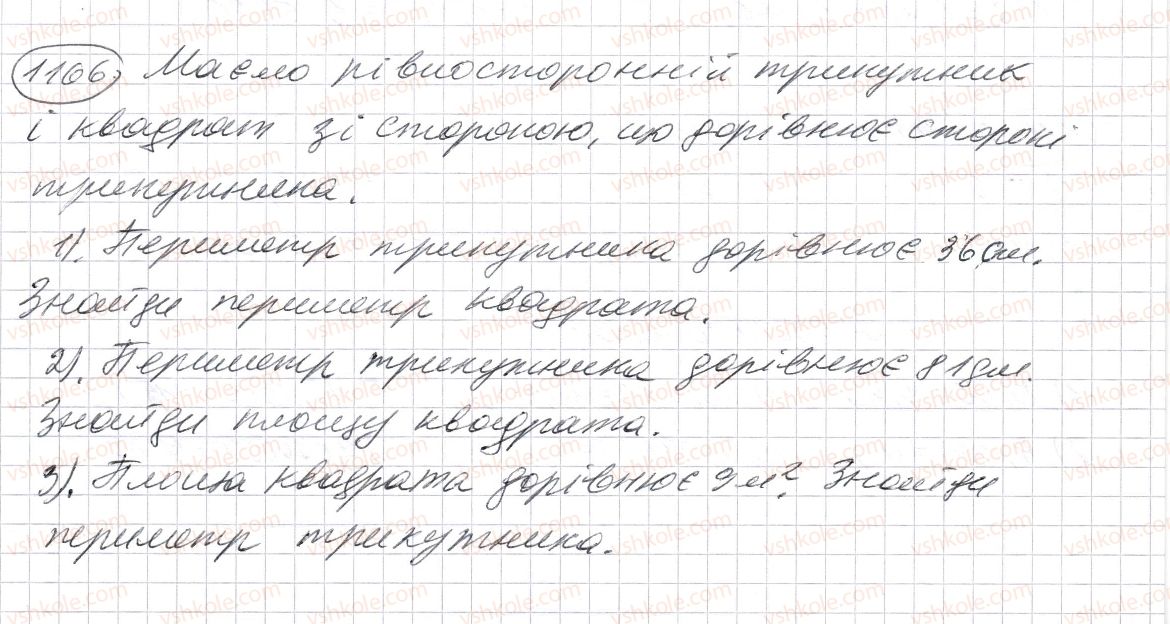 1166. Маємо рівносторонній трикутник
і квадрат зі стороною, що дорівнює стороні
трикутника.
1). Периметр трикутника дорівнює 36 см.
Знайди периметр квадрата.
2). Периметр трикутника дорівнює 81 дм.
Знайди площу квадрата.
3). Площа квадрата дорівнює 9 м². Знайди
периметр трикутника.